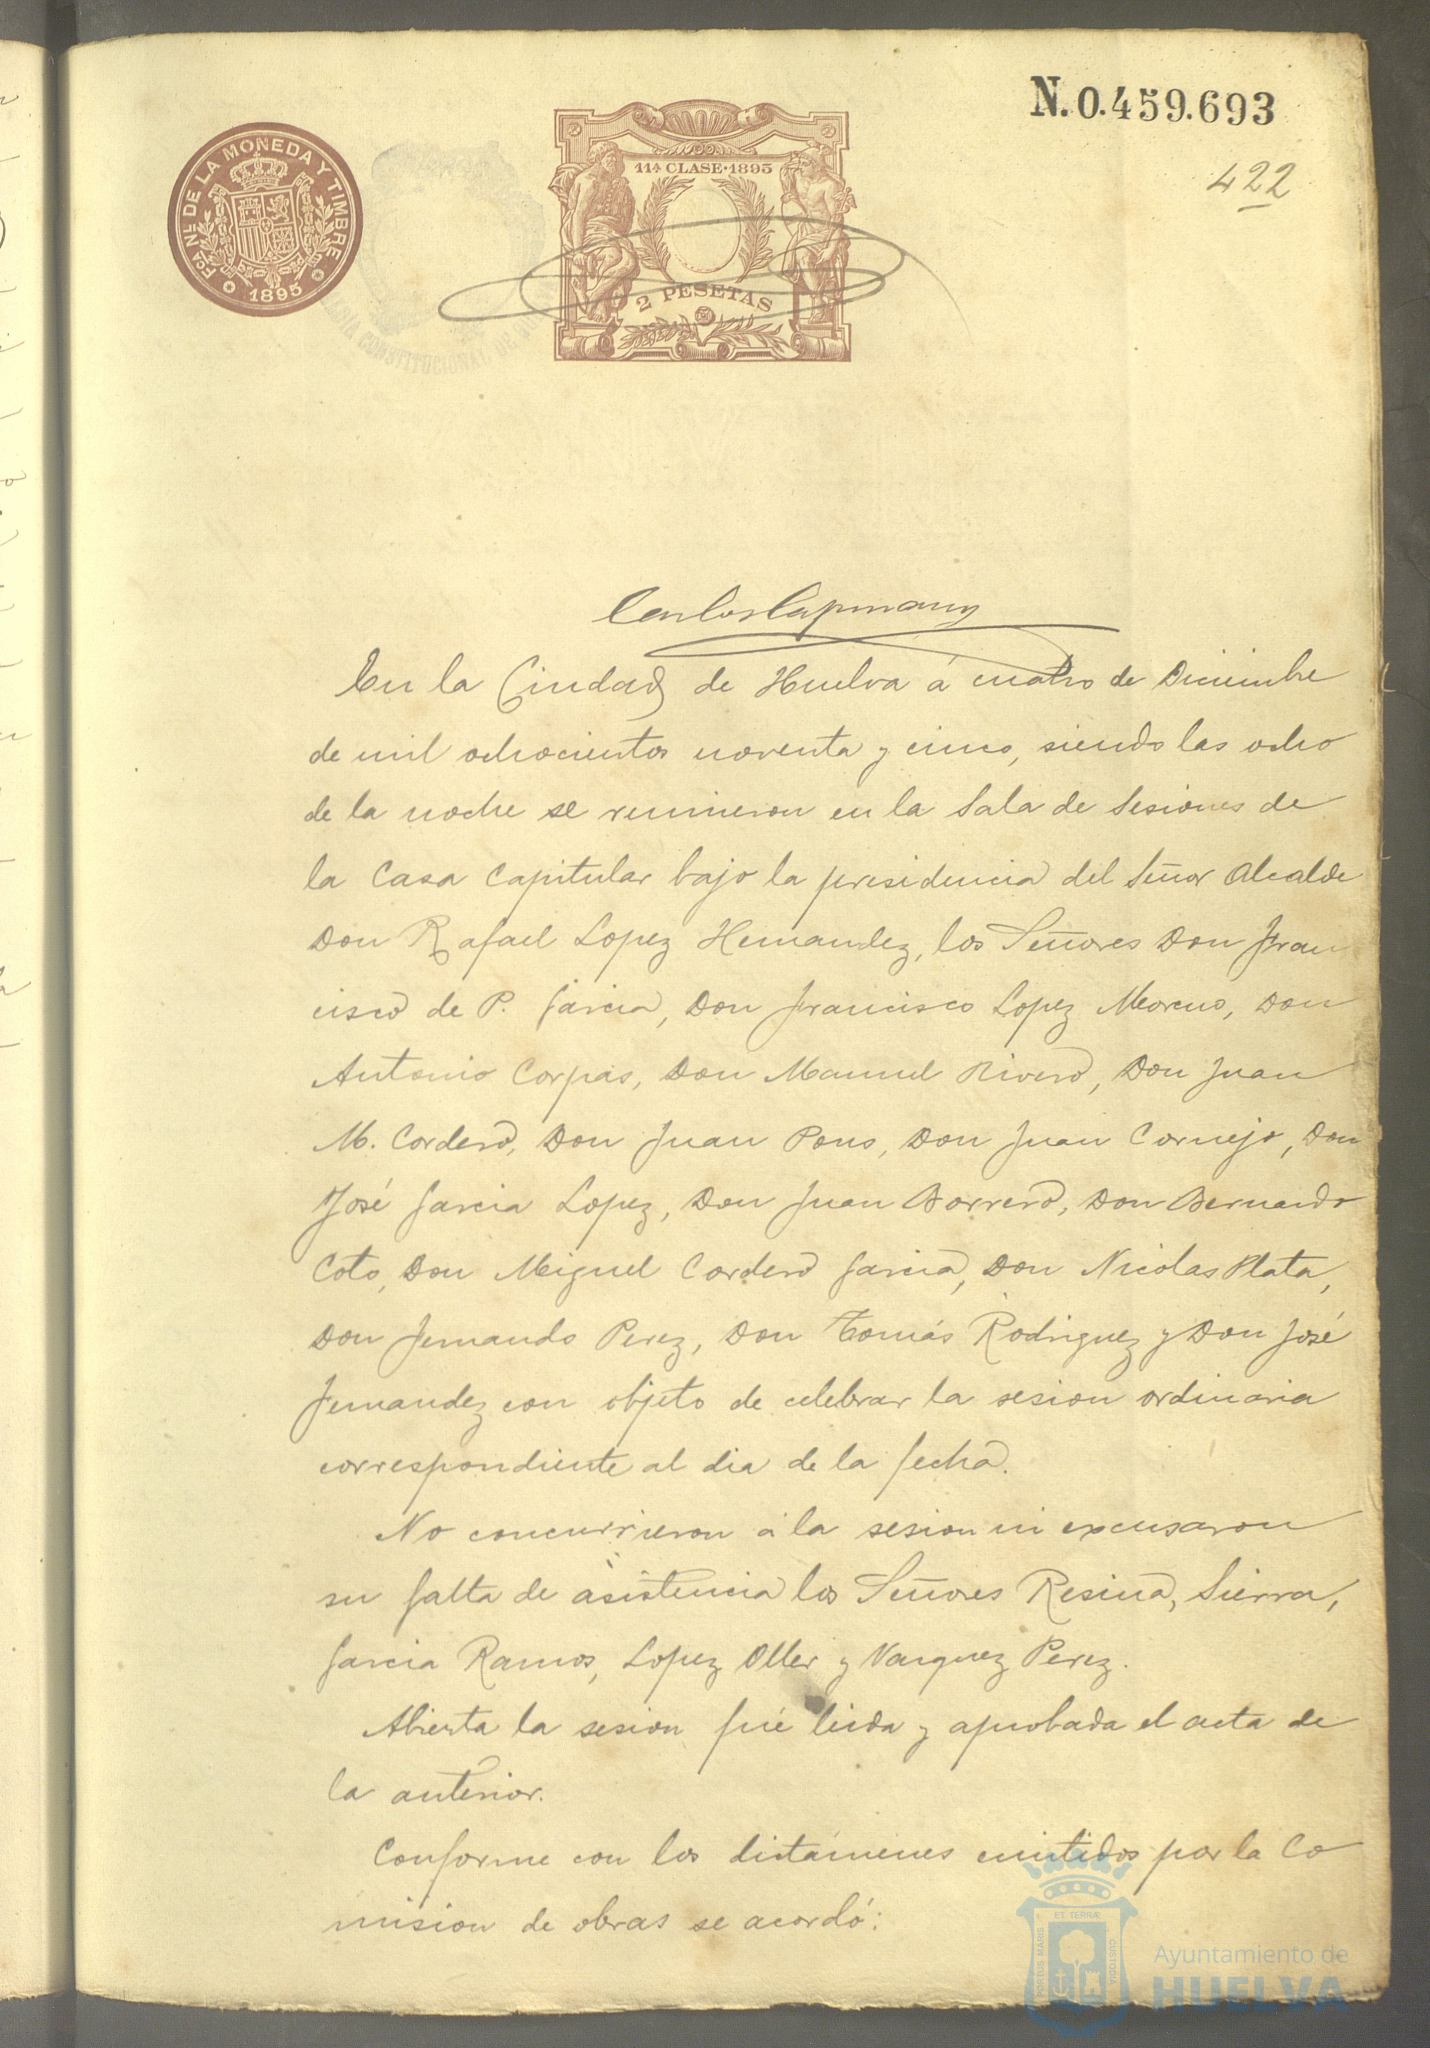 N. 0.459.693
422
FCA NL DE LA MONEDA Y TIMBRE
1895
11ª CLASE · 1895
2 PESETAS
CONSTITUCIONAL DE
Carlos Capmany
En la Ciudad de Huelva á cuatro de Diciembre
de mil ochocientos noventa y cinco, siendo las ocho
de la noche se reunieron en la Sala de Sesiones de
la Casa Capitular bajo la presidencia del Señor Alcalde
Don Rafael Lopez Hernandez, los Señores Don Fran
cisco de P. Garcia, Don Francisco Lopez Moreno, Don
Antonio Corpas, Don Manuel Rivero, Don Juan
M. Cordero, Don Juan Pons, Don Juan Cornejo, Don
José Garcia Lopez, Don Juan Borrero, Don Bernardo
Coto, Don Miguel Cordero Garcia, Don Nicolas Plata,
Don Fernando Perez, Don Tomás Rodriguez y Don José
Fernandez con objeto de celebrar la sesion ordinaria
correspondiente al dia de la fecha.
No concurrieron á la sesion ni excusaron
su falta de asistencia los Señores Resina, Sierra,
Garcia Ramos, Lopez Oller y Vazquez Perez.
Abierta la sesion fué leida y aprobada el acta de
la anterior.
Conforme con los dictámenes emitidos por la Co
mision de obras se acordó:
PORTUS MARIS ET TERRÆ CUSTODIA
Ayuntamiento de
HUELVA